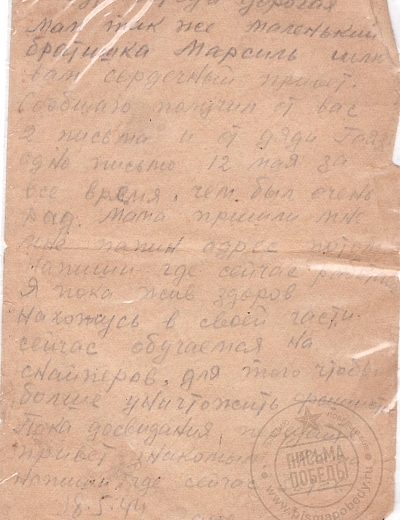 дорогая
мам так же маленький
братишка Марсиль шлю
вам сердечный привет.
Сообщаю получил от вас
2 письма и от дяди
одно письмо 12 мая за
все время, чем был очень
рад. Мама пришли мне
мне папин адрес потом
напиши где сейчас
Я пока жив здоров
нахожусь в своей части
сейчас обучаемся на
снайперов, для того чтобы
больше уничтожить
Пока досвидания
привет знакомым
напиши где сейчас
18.5.44
ПИСЬМА
ПОБЕДЫ
www.pismapobedy.ru